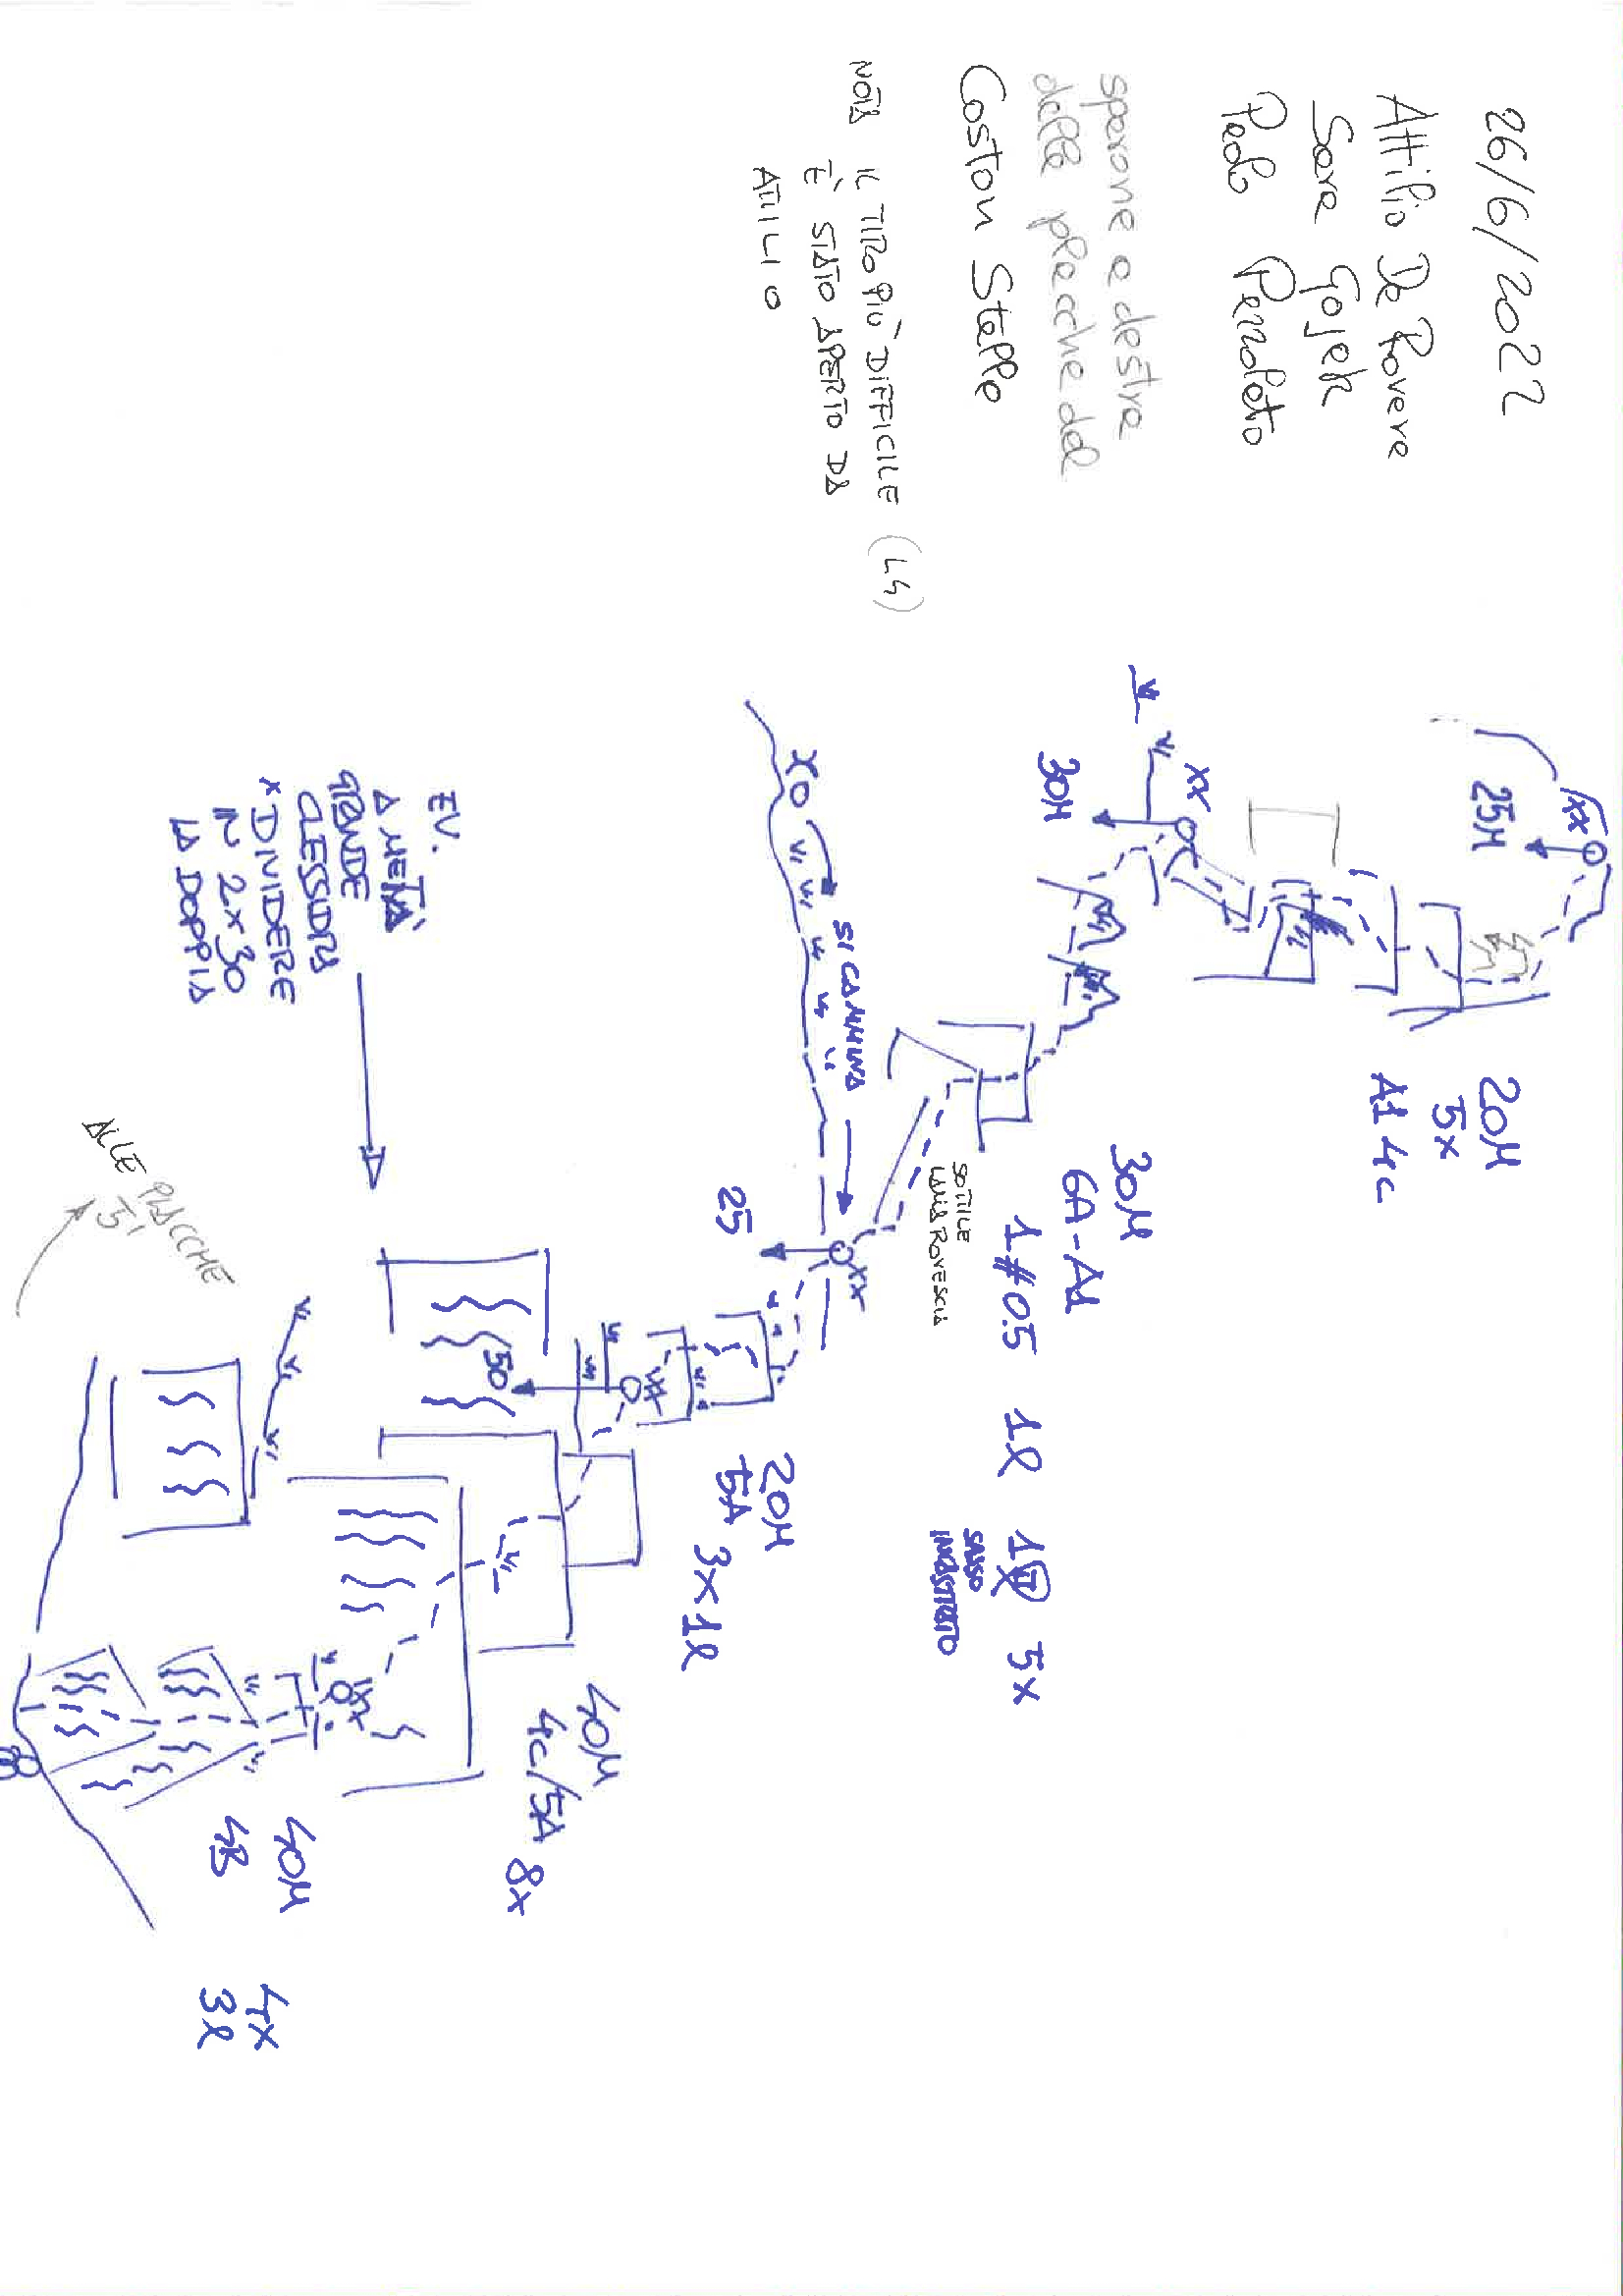 26/6/2022
Attilio De Rovere
Sara Gojek
Paolo Pezzoleto
sperone a destra
delle placche del
Coston Stella
NOTA IL TIRO PIÙ DIFFICILE (L4)
È STATO APERTO DA
ATTILIO
XX
25M
20M
5X
A1 4c
XX
30M
30M
6A-A1
1#0.5 1l 5X
SOTTILE
LAMA ROVESCIA
SASSO
INCASTRATO
XO
SI CAMMINA
XX
25
20M
5A 3X1l
XX
50
EV.
A METÀ
GRANDE
CLESSIDRA
X DIVIDERE
IN 2X30
LA DOPPIA
40M
4c/5A 8X
XX
40M
4B
4X
3l
ALLE PLACCHE
5'